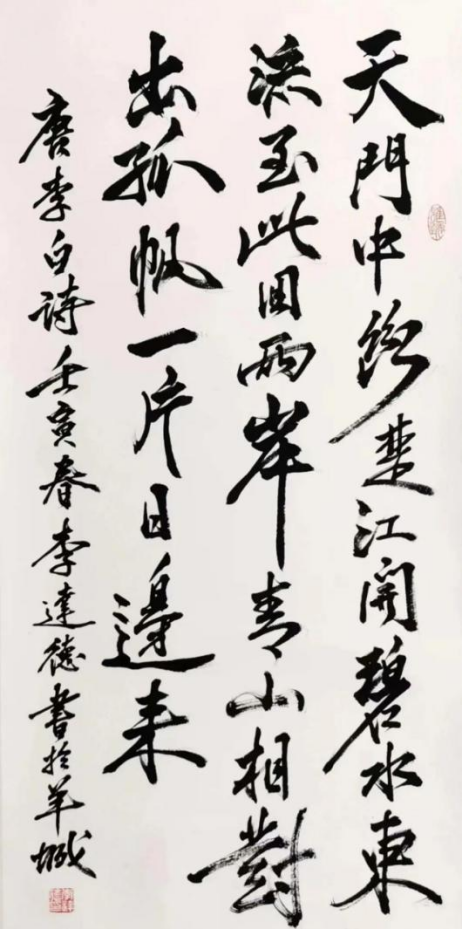 天門中斷楚江開碧水東
流至此回兩岸青山相對
出孤帆一片日邊來
唐李白詩壬寅春李達德書於羊城